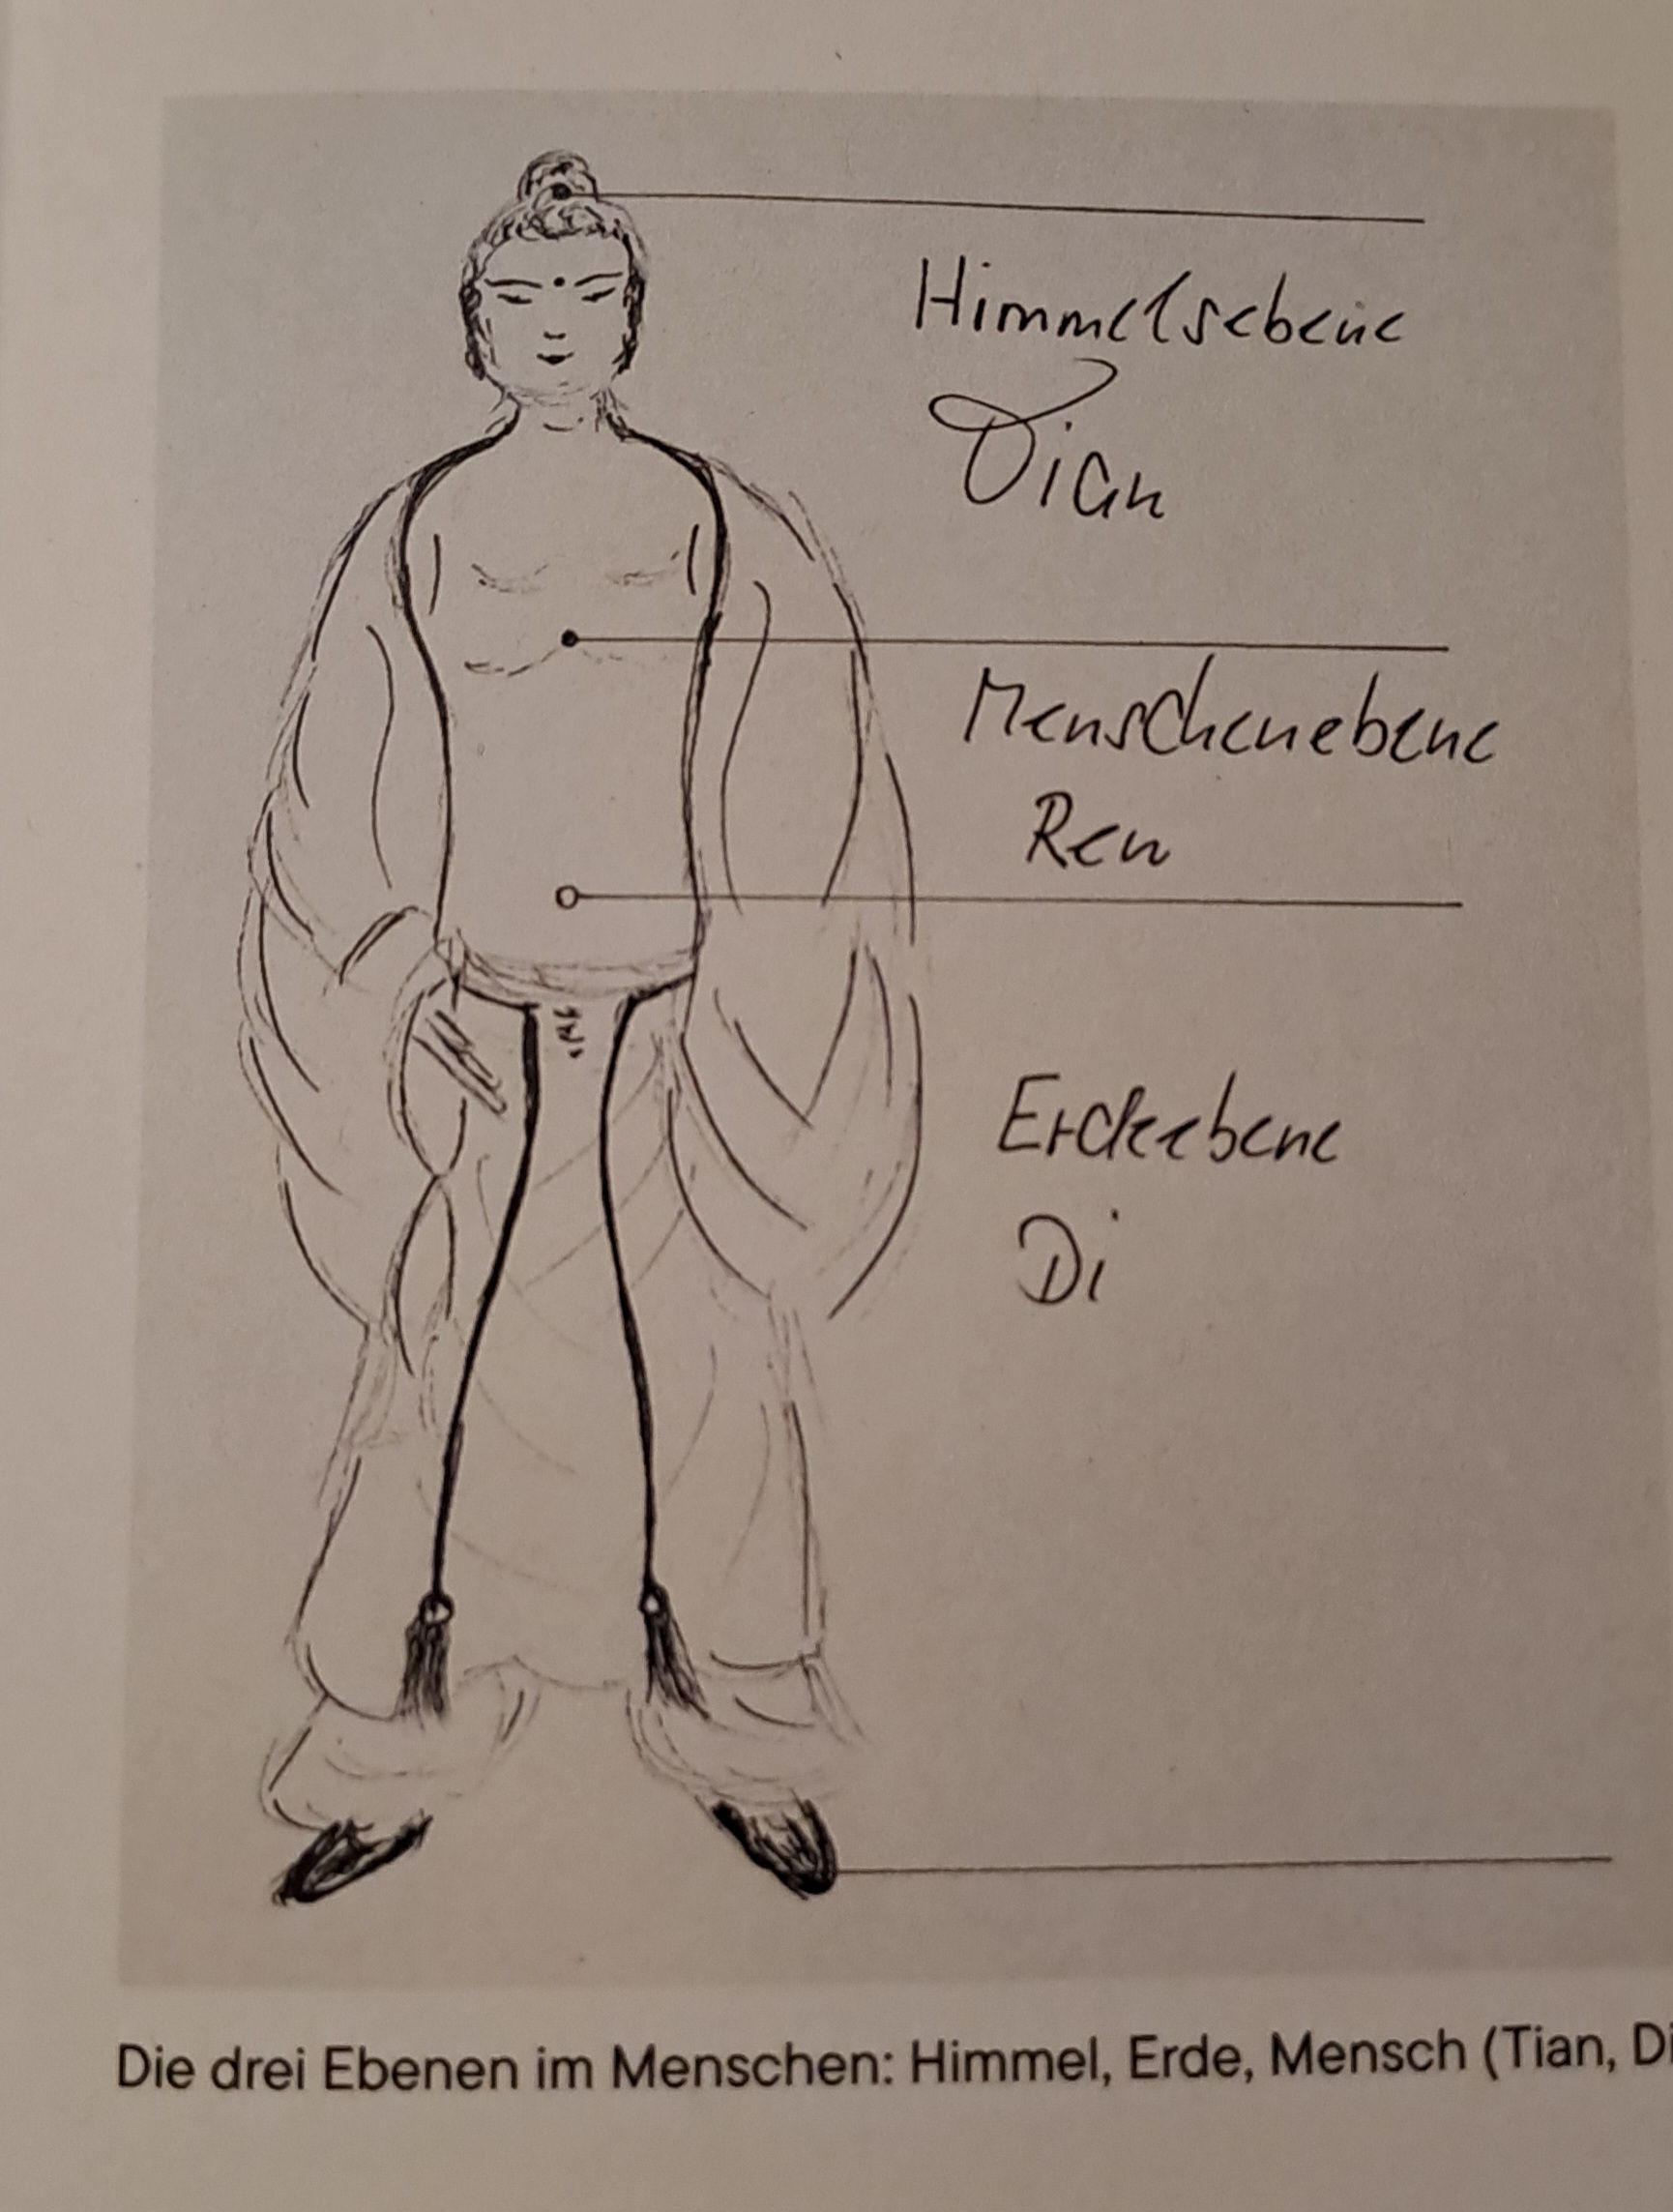 Himmelsebene
Tian
Menschenebene
Ren
Erdebene
Di
Die drei Ebenen im Menschen: Himmel, Erde, Mensch (Tian, Di